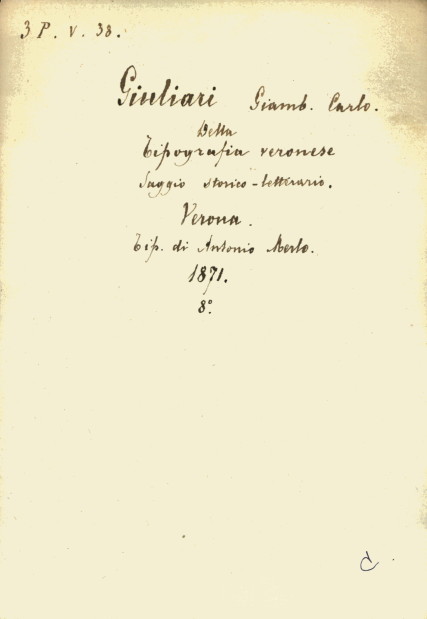 3. P. V. 38.
Giuliari Giamb. Carlo.
Della
Tipografia veronese
Saggio storico-letterario.
Verona.
Tip. di Antonio Merlo.
1871.
8°.
C